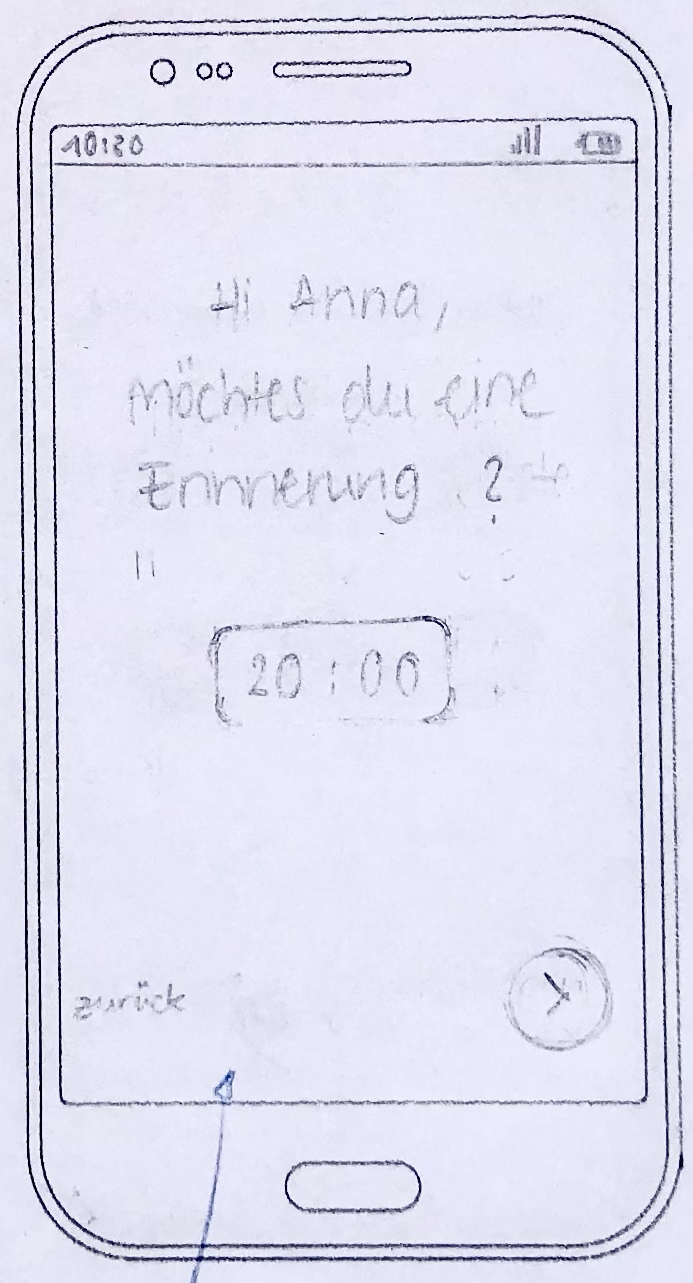 10:20
Hi Anna,
möchtes du eine
Erinnerung ?
20:00
zurück